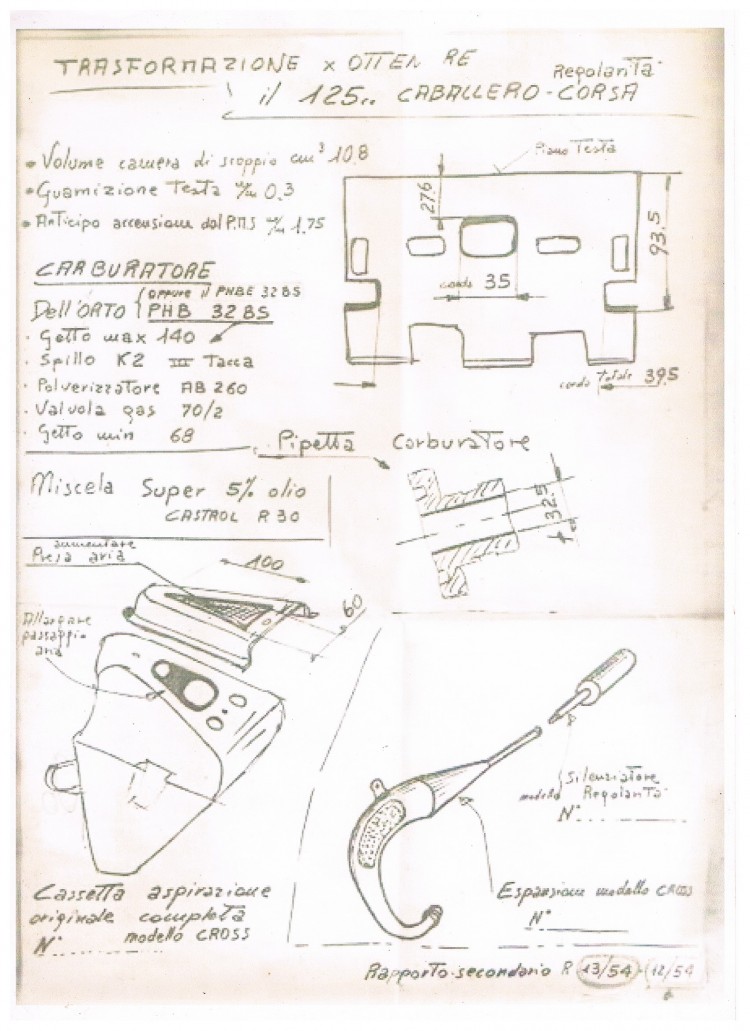 TRASFORMAZIONE x OTTENERE
il 125cc CABALLERO-CORSA Regolarità
• Volume camera di scoppio cm³ 10.8
• Guarnizione Testa m/m 0.3
• Anticipo accensione dal P.M.S m/m 1.75
Piano Testa
27.6
93.5
corda 35
corda totale 39.5
CARBURATORE
Dell'ORTO { oppure il PHBE 32 BS
PHB 32 BS
· Getto max 140
· Spillo K2 III Tacca
· Polverizzatore AB 260
· Valvola gas 70/2
· Getto min 68
Pipetta Carburatore
32.5
Miscela Super 5% olio
CASTROL R 30
aumentare
Presa aria
100
60
Allargare
passaggio
aria
Silenziatore
modello Regolarità
N°
Espansione modello CROSS
N°
Cassetta aspirazione
originale completa
N° modello CROSS
Rapporto secondario R 13/54 - 12/54